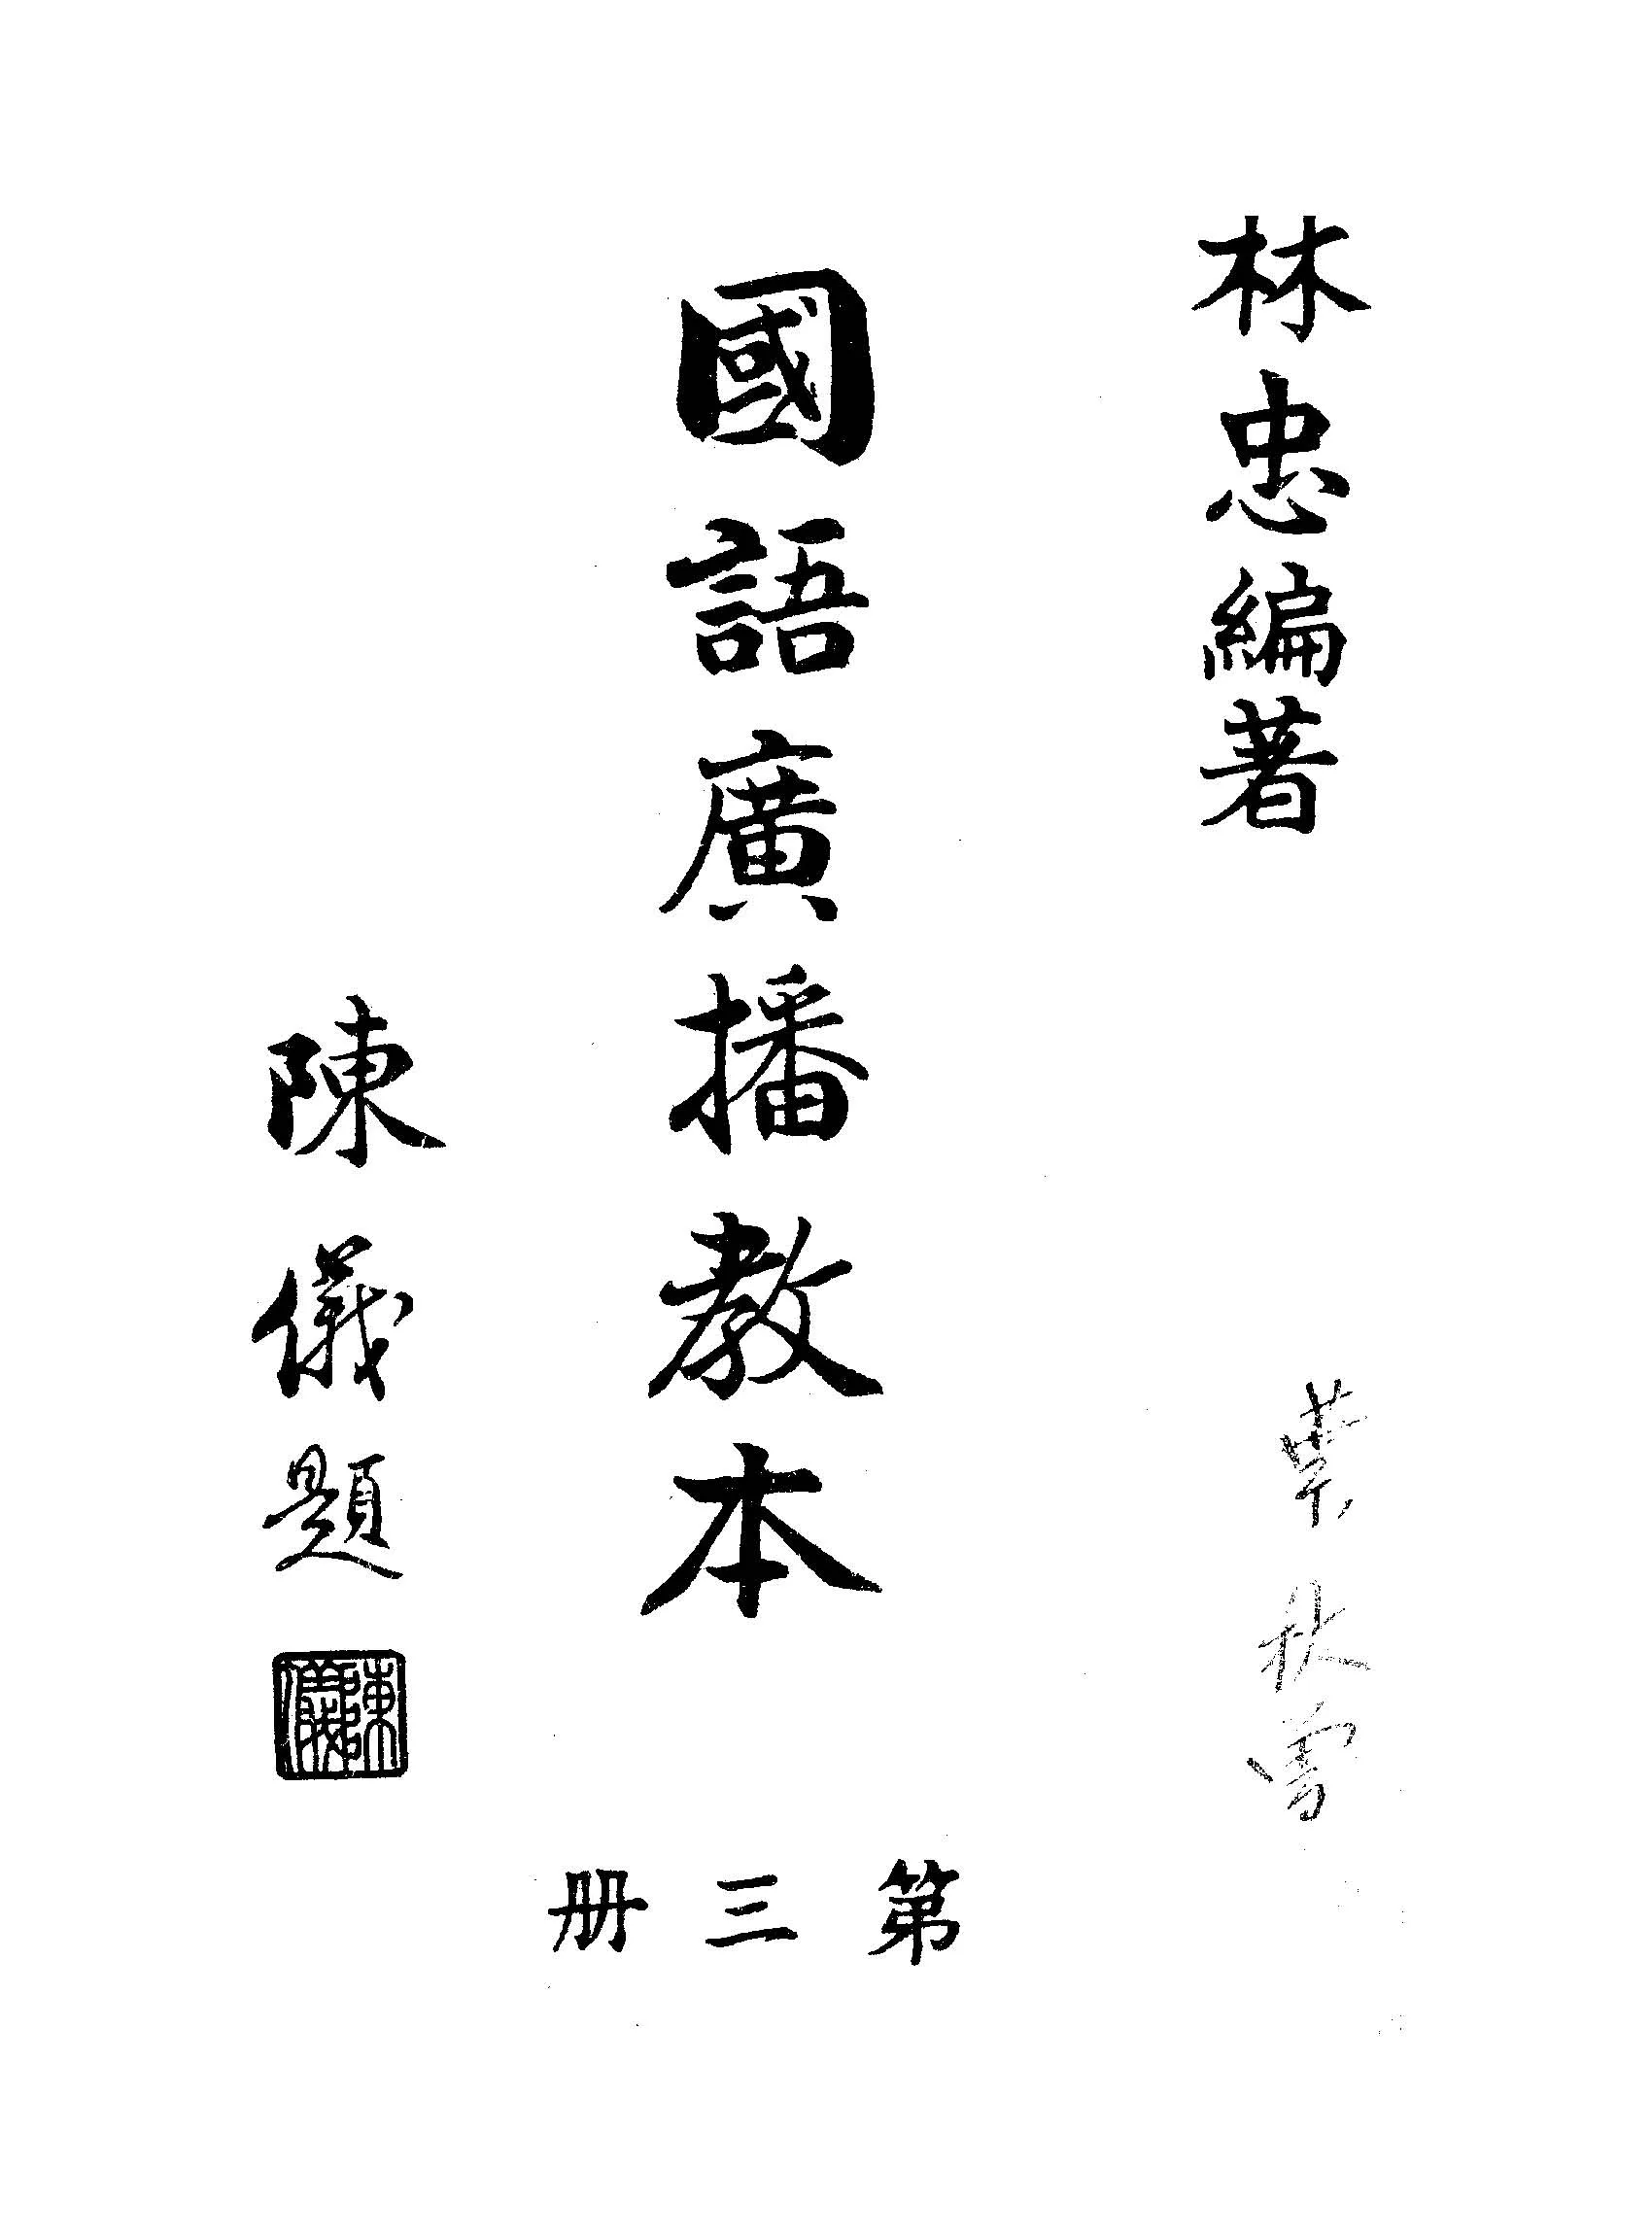 林忠編著
葉秋雪
國語廣播教本
第三册
陳儀題
陳儀